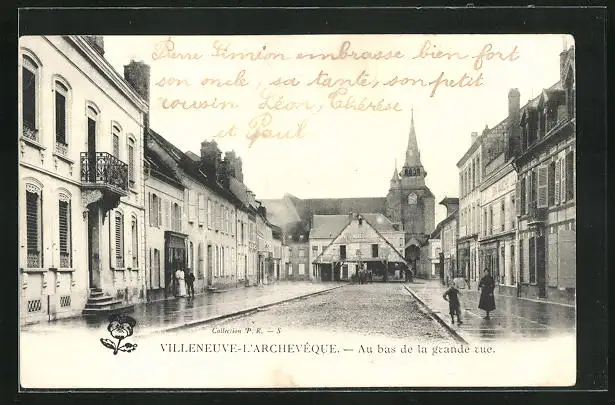 Pierre Siméon embrasse bien fort
son oncle, sa tante, son petit
cousin Léon, Thérèse
et Paul
Collection P. R. — S
VILLENEUVE-L'ARCHEVÊQUE. — Au bas de la grande rue.